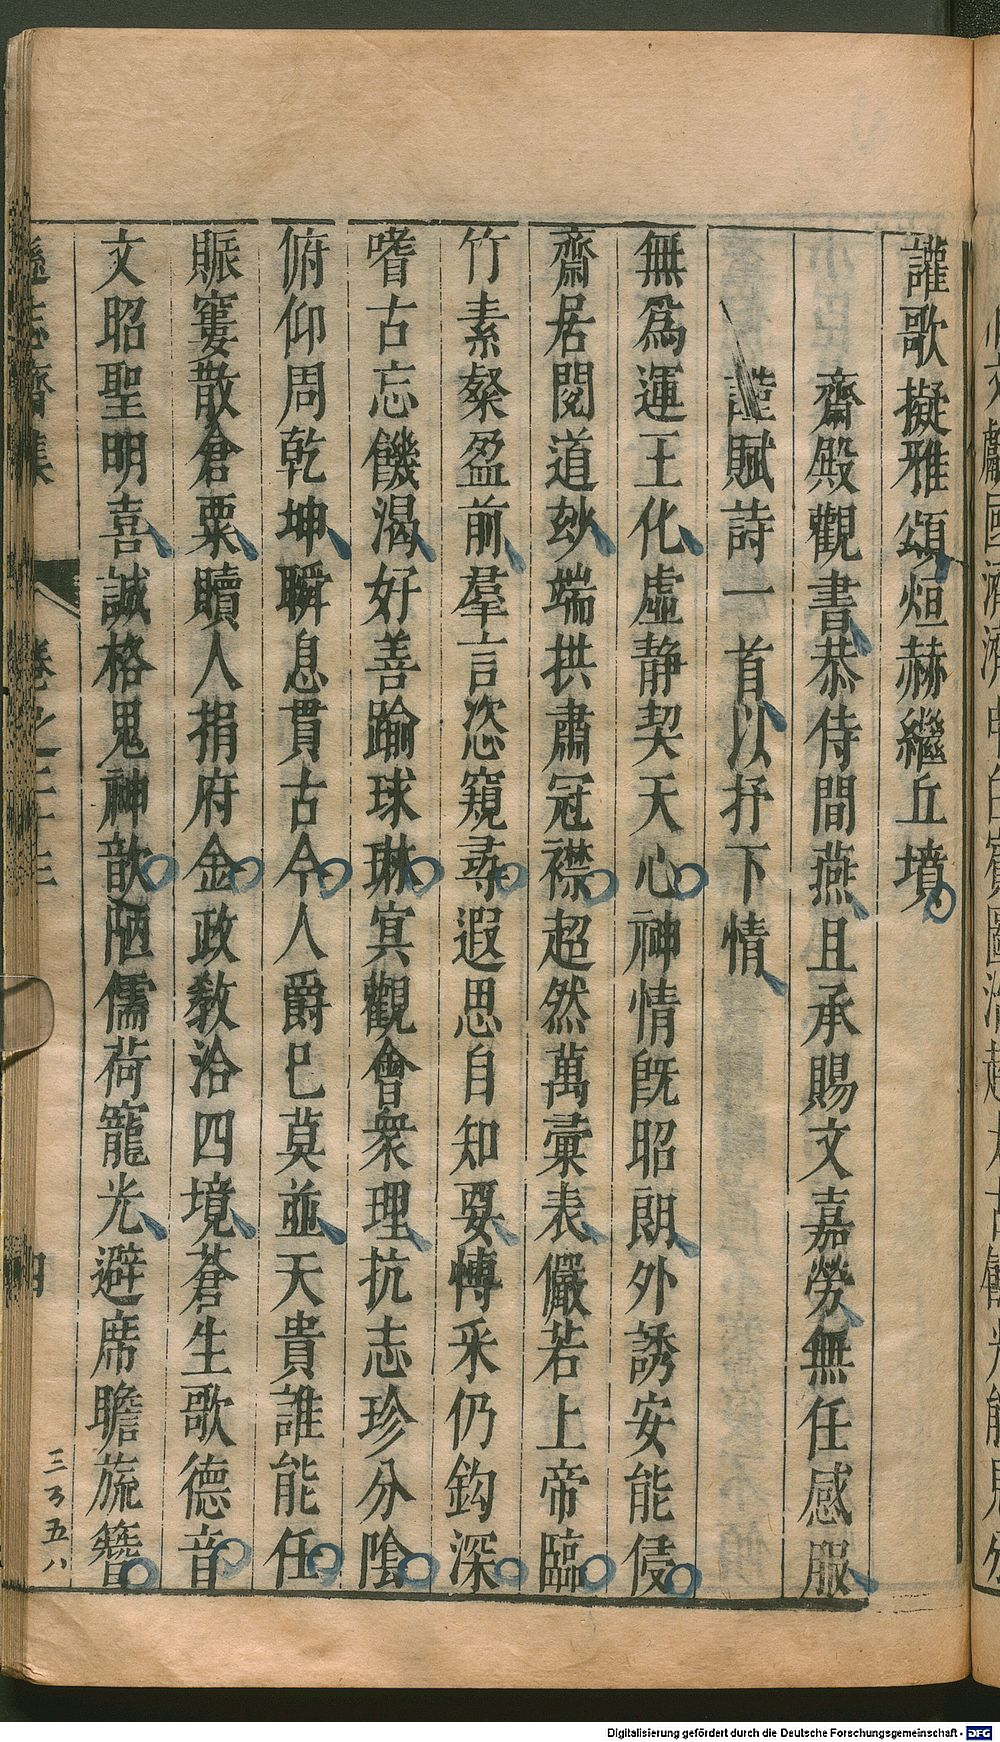 讙歌擬雅頌烜赫繼丘墳
齋殿觀書恭侍間燕且承賜文嘉勞無任感服
謹賦詩一首以抒下情
無爲運王化虛靜契天心神情旣昭朗外誘安能侵
齋居閱道玅端拱肅冠襟超然萬彙表儼若上帝臨
竹素粲盈前羣言恣窺尋遐思自知要博采仍鈎深
嗜古忘饑渴好善踰球琳冥觀會衆理抗志珍分陰
俯仰周乾坤瞬息貫古今人爵巳莫並天貴誰能任
賑窶散倉粟贖人捐府金政敎洽四境蒼生歌德音
文昭聖明喜誠格鬼神歆陋儒荷寵光避席瞻旒簪
遜志齋集 卷之二十三 四
三乃五八
Digitalisierung gefördert durch die Deutsche Forschungsgemeinschaft - DFG